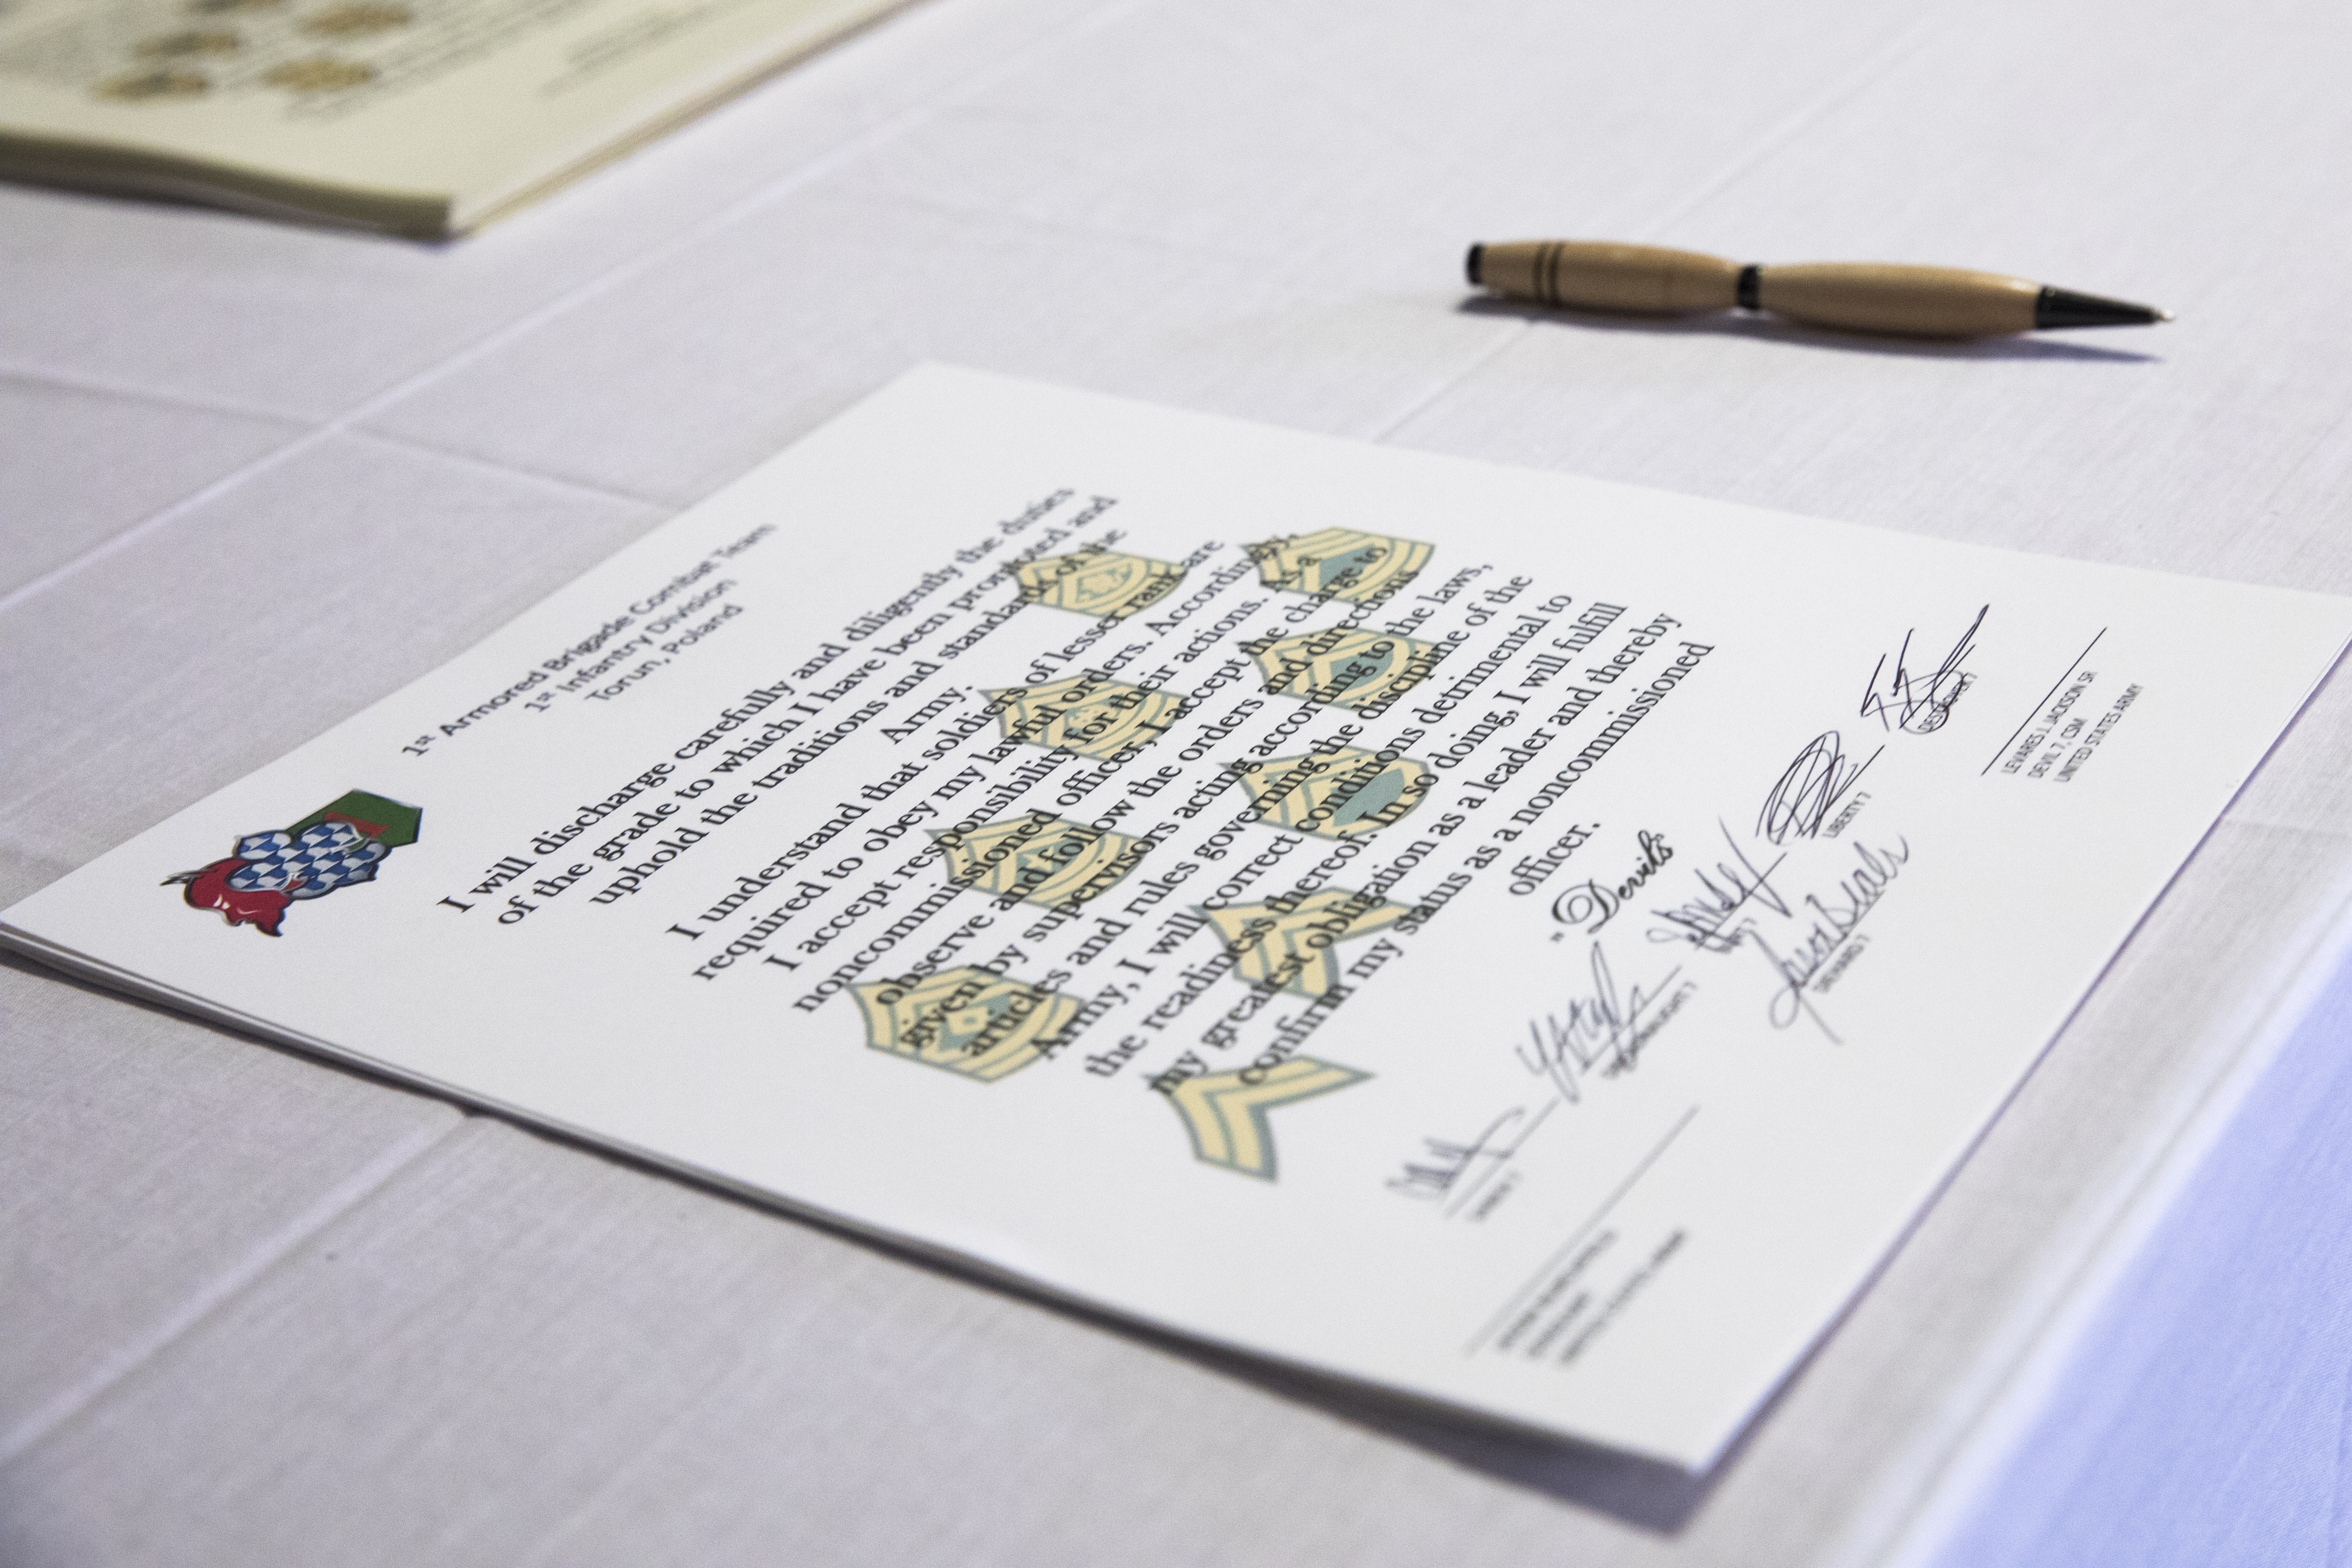 1st Armored Brigade Combat Team
1st Infantry Division
Torun, Poland
I will discharge carefully and diligently the duties
of the grade to which I have been promoted and
uphold the traditions and standards of the
Army.
I understand that soldiers of lesser rank are
required to obey my lawful orders. Accordingly,
I accept responsibility for their actions. As a
noncommissioned officer, I accept the charge to
observe and follow the orders and directions
given by supervisors acting according to the laws,
articles and rules governing the discipline of the
Army, I will correct conditions detrimental to
the readiness thereof. In so doing, I will fulfill
my greatest obligation as a leader and thereby
confirm my status as a noncommissioned
officer.
"Devils
LIBERTY 7
LEVARES J. JACKSON SR
DEVIL 7, CSM
UNITED STATES ARMY